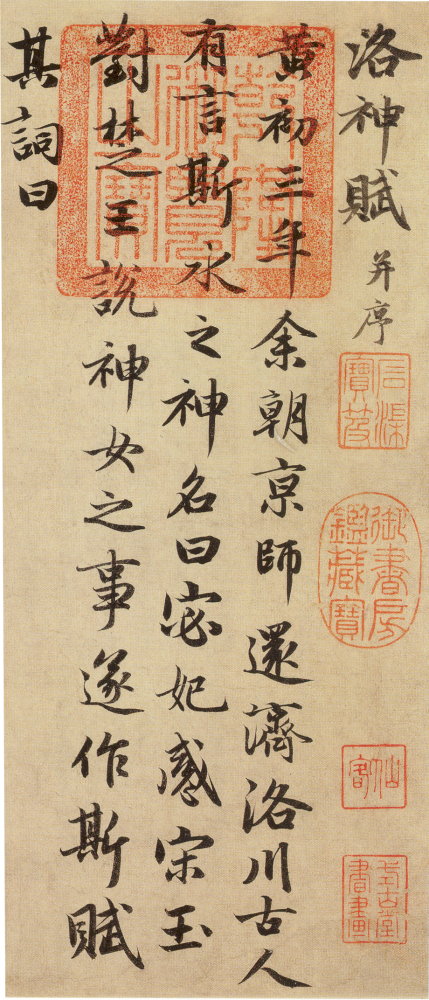 洛神賦 并序
黄初三年余朝亰師還濟洛川古人
有言斯水之神名曰宓妃感宋玉
對楚王說神女之事遂作斯賦
其詞曰
石渠寶笈
御書房鑑藏寶
式古堂書畫